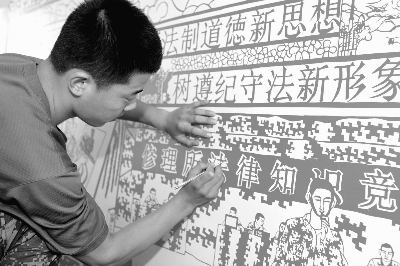 法制道德新思想
树遵纪守法新形象
修理所法律知识竞